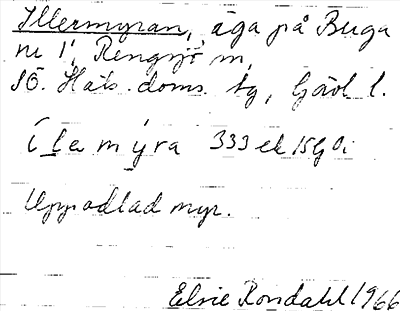 Illermyran, äga på Buga
nr 1, Rengsjö sn,
SÖ. Häls. doms. tg, Gävl. l.
Ílamýra 333 ek
Uppodlad myr.
Elsie Rondahl 1966